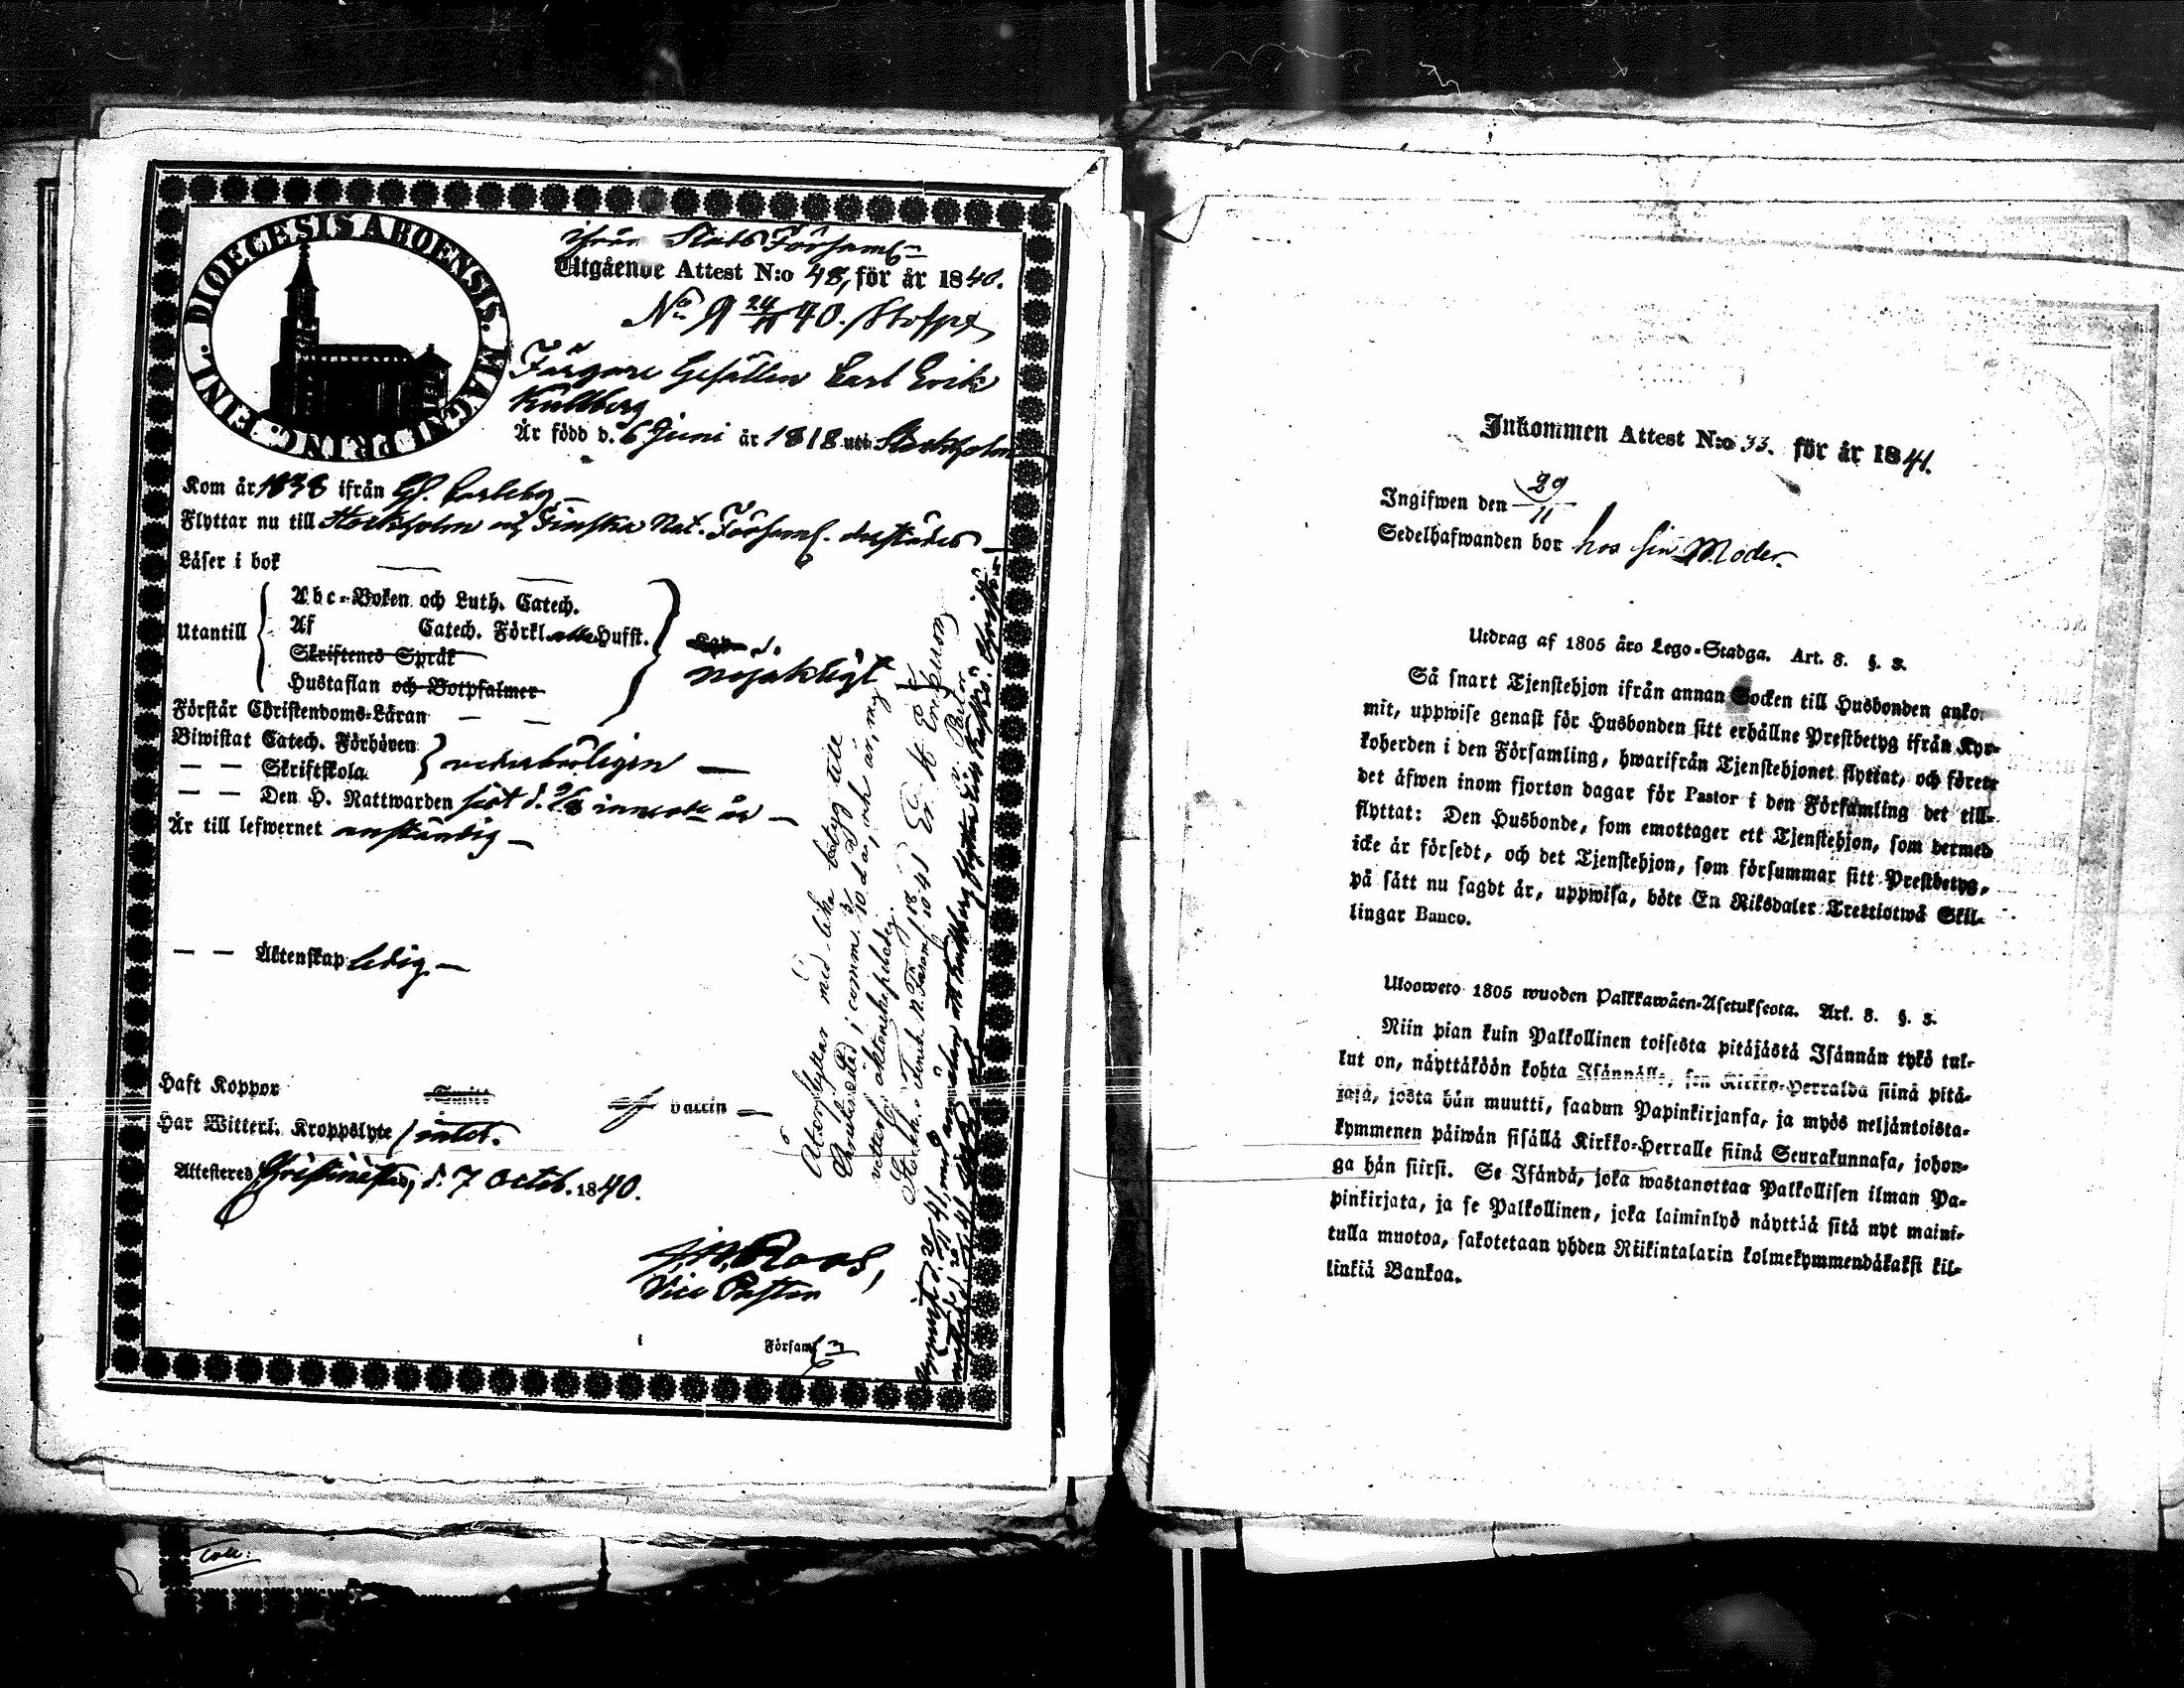 DIOECESIS ABOENSIS. MAGNI PRINC. FINL.
ifrån Stads Församl:n
Utgående Attest N:o 48, för år 1840.
No 9 24/11 40.
Färgare Gesällen Carl Erik
Kullberg
Är född d. 6 Juni år 1818 uti Stockholm
Kom år 1838 ifrån Gl. Carleby
Flyttar nu till Stockholm och Finska Nat. Församl. derstädes
Läser i bok
Utantill
Abc-Boken och Luth. Catech.
Af Catech. Förkl. alla Hufst.
Skriftenes Språk
Hustaflan och Botpsalmer
nöjaktligt
Förstår Christendoms-Läran
Biwistat Catech. Förhören
— — Skriftskola
vederbörligen
— — Den H. Nattwarden sist d. innev. år
Är till lefwernet anständig
— — Äktenskap ledig
Haft Koppor vaccin
Har Witterl. Kroppslyte intet.
Attesteres Christinestad, d. 7 Octob. 1840.
J. A. Roos,
Vice Pastor
i Församl
Återflyttar med lika betyg till
Christinestad i comm. 10 d. a., och är, mig
vetterl. äktenskapsledig.
Coll:
Inkommen Attest N:o 33. för år 1841.
Ingifwen den 29/11
Sedelhafwanden bor hos sin Moder.
Utdrag af 1805 års Lego-Stadga. Art. 8. §. 3.
Så snart Tjenstehjon ifrån annan Socken till Husbonden anko-
mit, uppwise genast för Husbonden sitt erhållne Prestbetyg ifrån Kyr-
koherden i den Församling, hwarifrån Tjenstehjonet flyttat, och förete
det äfwen inom fjorton dagar för Pastor i den Församling det till-
flyttat: Den Husbonde, som emottager ett Tjenstehjon, som dermed
icke är försedt, och det Tjenstehjon, som försummar sitt Prestbetyg,
på sätt nu sagdt är, uppwisa, böte En Riksdaler Trettiotwå Skil-
lingar Banco.
Uloosweto 1805 wuoden Palkkawäen-Asetuksesta. Art. 8. §. 3.
Niin pian kuin Palkollinen toisesta pitäjästä Isännän tykö tul-
lut on, näyttäköön kohta Isännälle, sen Kirkko-Herralda siinä pitä-
jäsä, josta hän muutti, saadun Papinkirjansa, ja myös neljäntoista-
kymmenen päiwän sisällä Kirkko-Herralle siinä Seurakunnasa, johon-
ga hän siirsi. Se Isändä, joka wastanottaa Palkollisen ilman Pa-
pinkirjata, ja se Palkollinen, joka laiminlyö näyttää sitä nyt maini-
tulla muotoa, sakotetaan yhden Riikintalarin kolmekymmendäkaksi kil-
linkiä Bankoa.